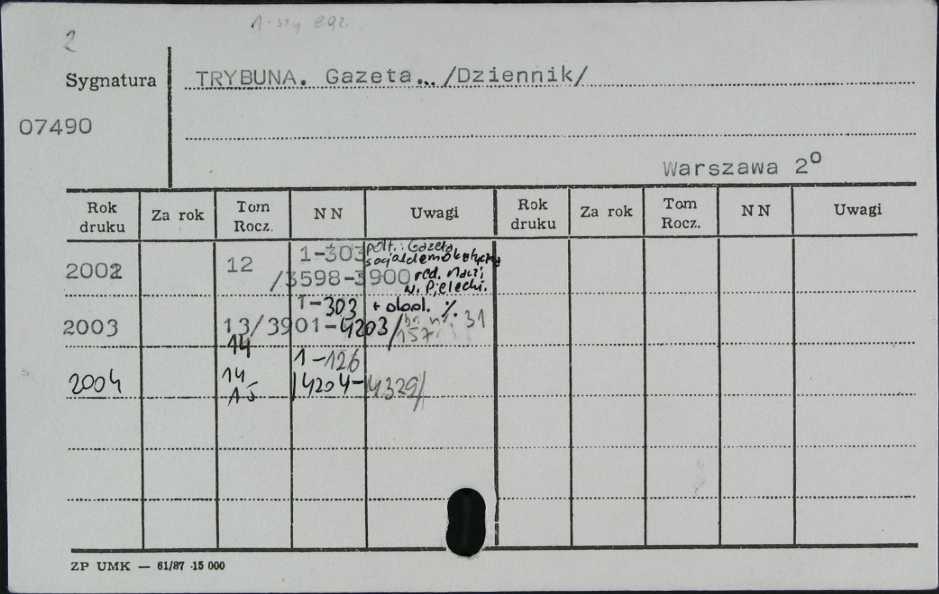 2
Sygnatura TRYBUNA. Gazeta... /Dziennik/
07490
Warszawa 2⁰
Rok druku Za rok Tom Rocz. NN Uwagi Rok druku Za rok Tom Rocz. NN Uwagi
2002 12 1-303 podt.: Gazeta
socjaldemokratyczna
/3598-3900 red. nacz.
1-303 + dod.
2003 13/3901-4203/ 157 31
14 1-126
2004 14 /4204-4329/
15
ZP UMK — 61/87 ·15 000